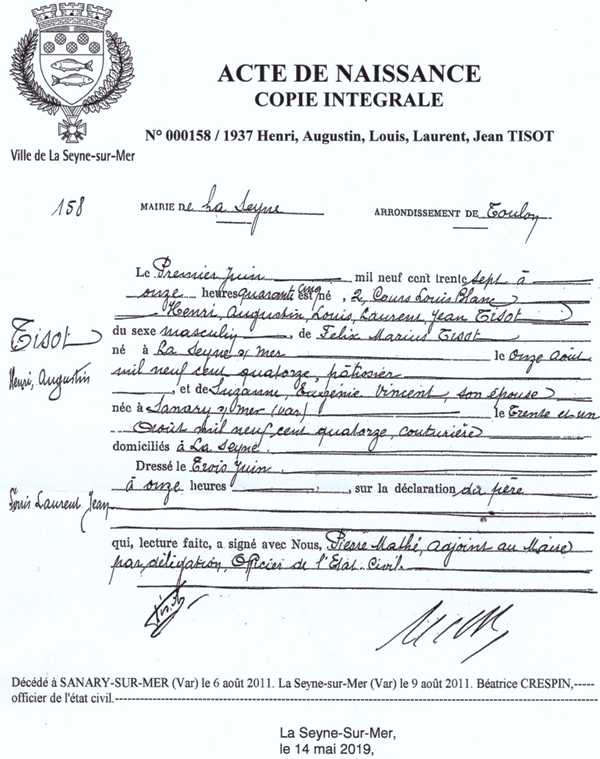 ACTE DE NAISSANCE
COPIE INTEGRALE
N° 000158 / 1937 Henri, Augustin, Louis, Laurent, Jean TISOT
Ville de La Seyne-sur-Mer
158
MAIRIE DE La Seyne
ARRONDISSEMENT DE Toulon
Le Premier Juin mil neuf cent trente sept à
onze heures quarante cinq est né, 2, Cours Louis Blanc
Henri, Augustin, Louis, Laurent, Jean Tisot
Tisot
du sexe masculin, de Felix Marius Tisot
né à La Seyne s/ mer le onze Août
Henri, Augustin
mil neuf cent quatorze, pâtissier
, et de Suzanne, Eugénie Vincent, son épouse
née à Sanary s/ mer (Var) le trente et un
Août mil neuf cent quatorze, couturière
domiciliés à La Seyne.
Dressé le Trois Juin
à onze heures, sur la déclaration du père
Louis Laurent Jean
qui, lecture faite, a signé avec Nous, Pierre Mathé, adjoint au Maire
par délégation, Officier de l'Etat-Civil.
Tisot
Décédé à SANARY-SUR-MER (Var) le 6 août 2011. La Seyne-sur-Mer (Var) le 9 août 2011. Béatrice CRESPIN,-----
officier de l'état civil.-----
La Seyne-Sur-Mer,
le 14 mai 2019,